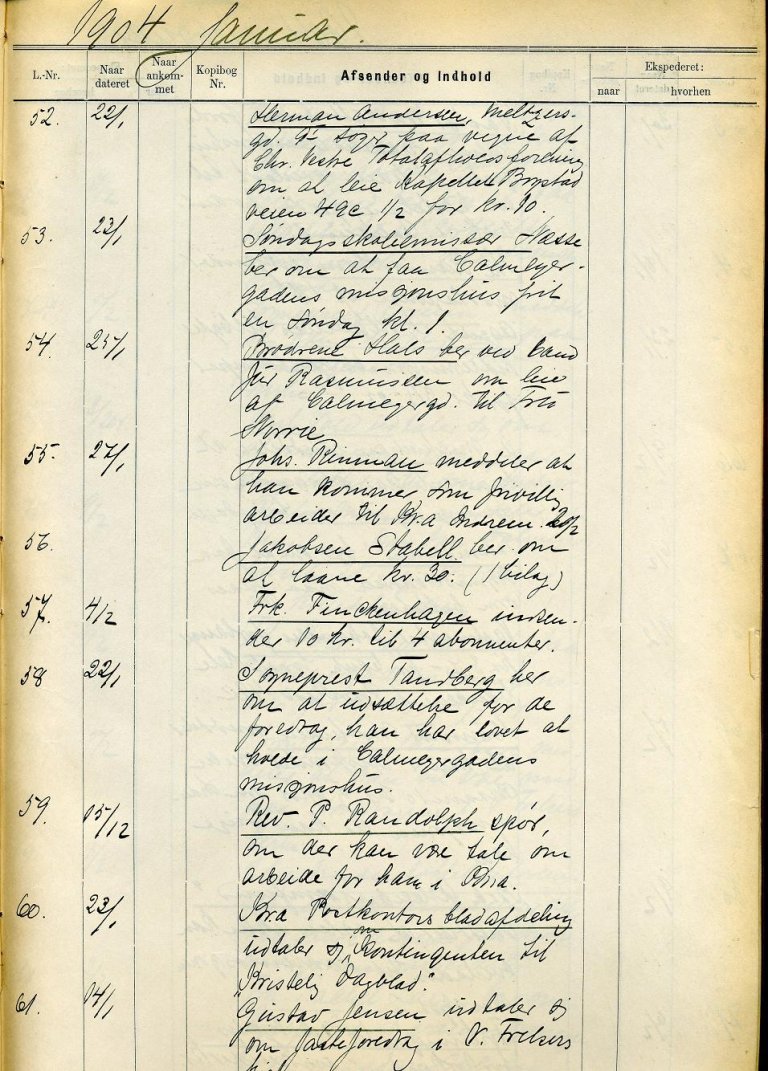 1904 Januar.
L.-Nr. Naar dateret Naar ankommet Kopibog Nr. Afsender og Indhold Ekspederet: naar hvorhen
52. 22/1 Herman Andersen, Meltzers-
gd. 9 søger paa vegne af
Chr. Vestre Totalafholdsforening
om at leie kapellet
veien 49c 1/2 for kr. 10.
53. 23/1 Søndagsskolemissær Næsse
ber om at faa Calmeyer-
gadens misjonshus frit
en søndag kl. 1.
54. 25/1 Brødrene Hals ber ved cand
jur Rasmussen om leie
af Calmeyergd. til Fru
Norrie
55. 27/1 Johs. Rinman meddeler at
han kommer som frivillig
arbeider til Kr.a Indrem. 20/2
56. Jakobsen Stabell ber om
at laane kr. 30. (1 bilag)
57. 4/2 Frk. Finckenhagen indsen-
der 10 kr. til 4 abonnenter.
58 22/1 Sogneprest Tandberg ber
om at udsættelse for de
foredrag, han har lovet at
holde i Calmeyergadens
misjonshus.
59. 15/12 Rev. P. Randolph spør,
om der kan være tale om
arbeide for ham i Kr.a.
60. 23/1 Kr.a Postkontors bladafdeling
udtaler sj om kontingenten til
"Kristelig Dagblad".
61. 14/1 Gustav Jensen udtaler sj
om fasteforedrag i V. Frelsers